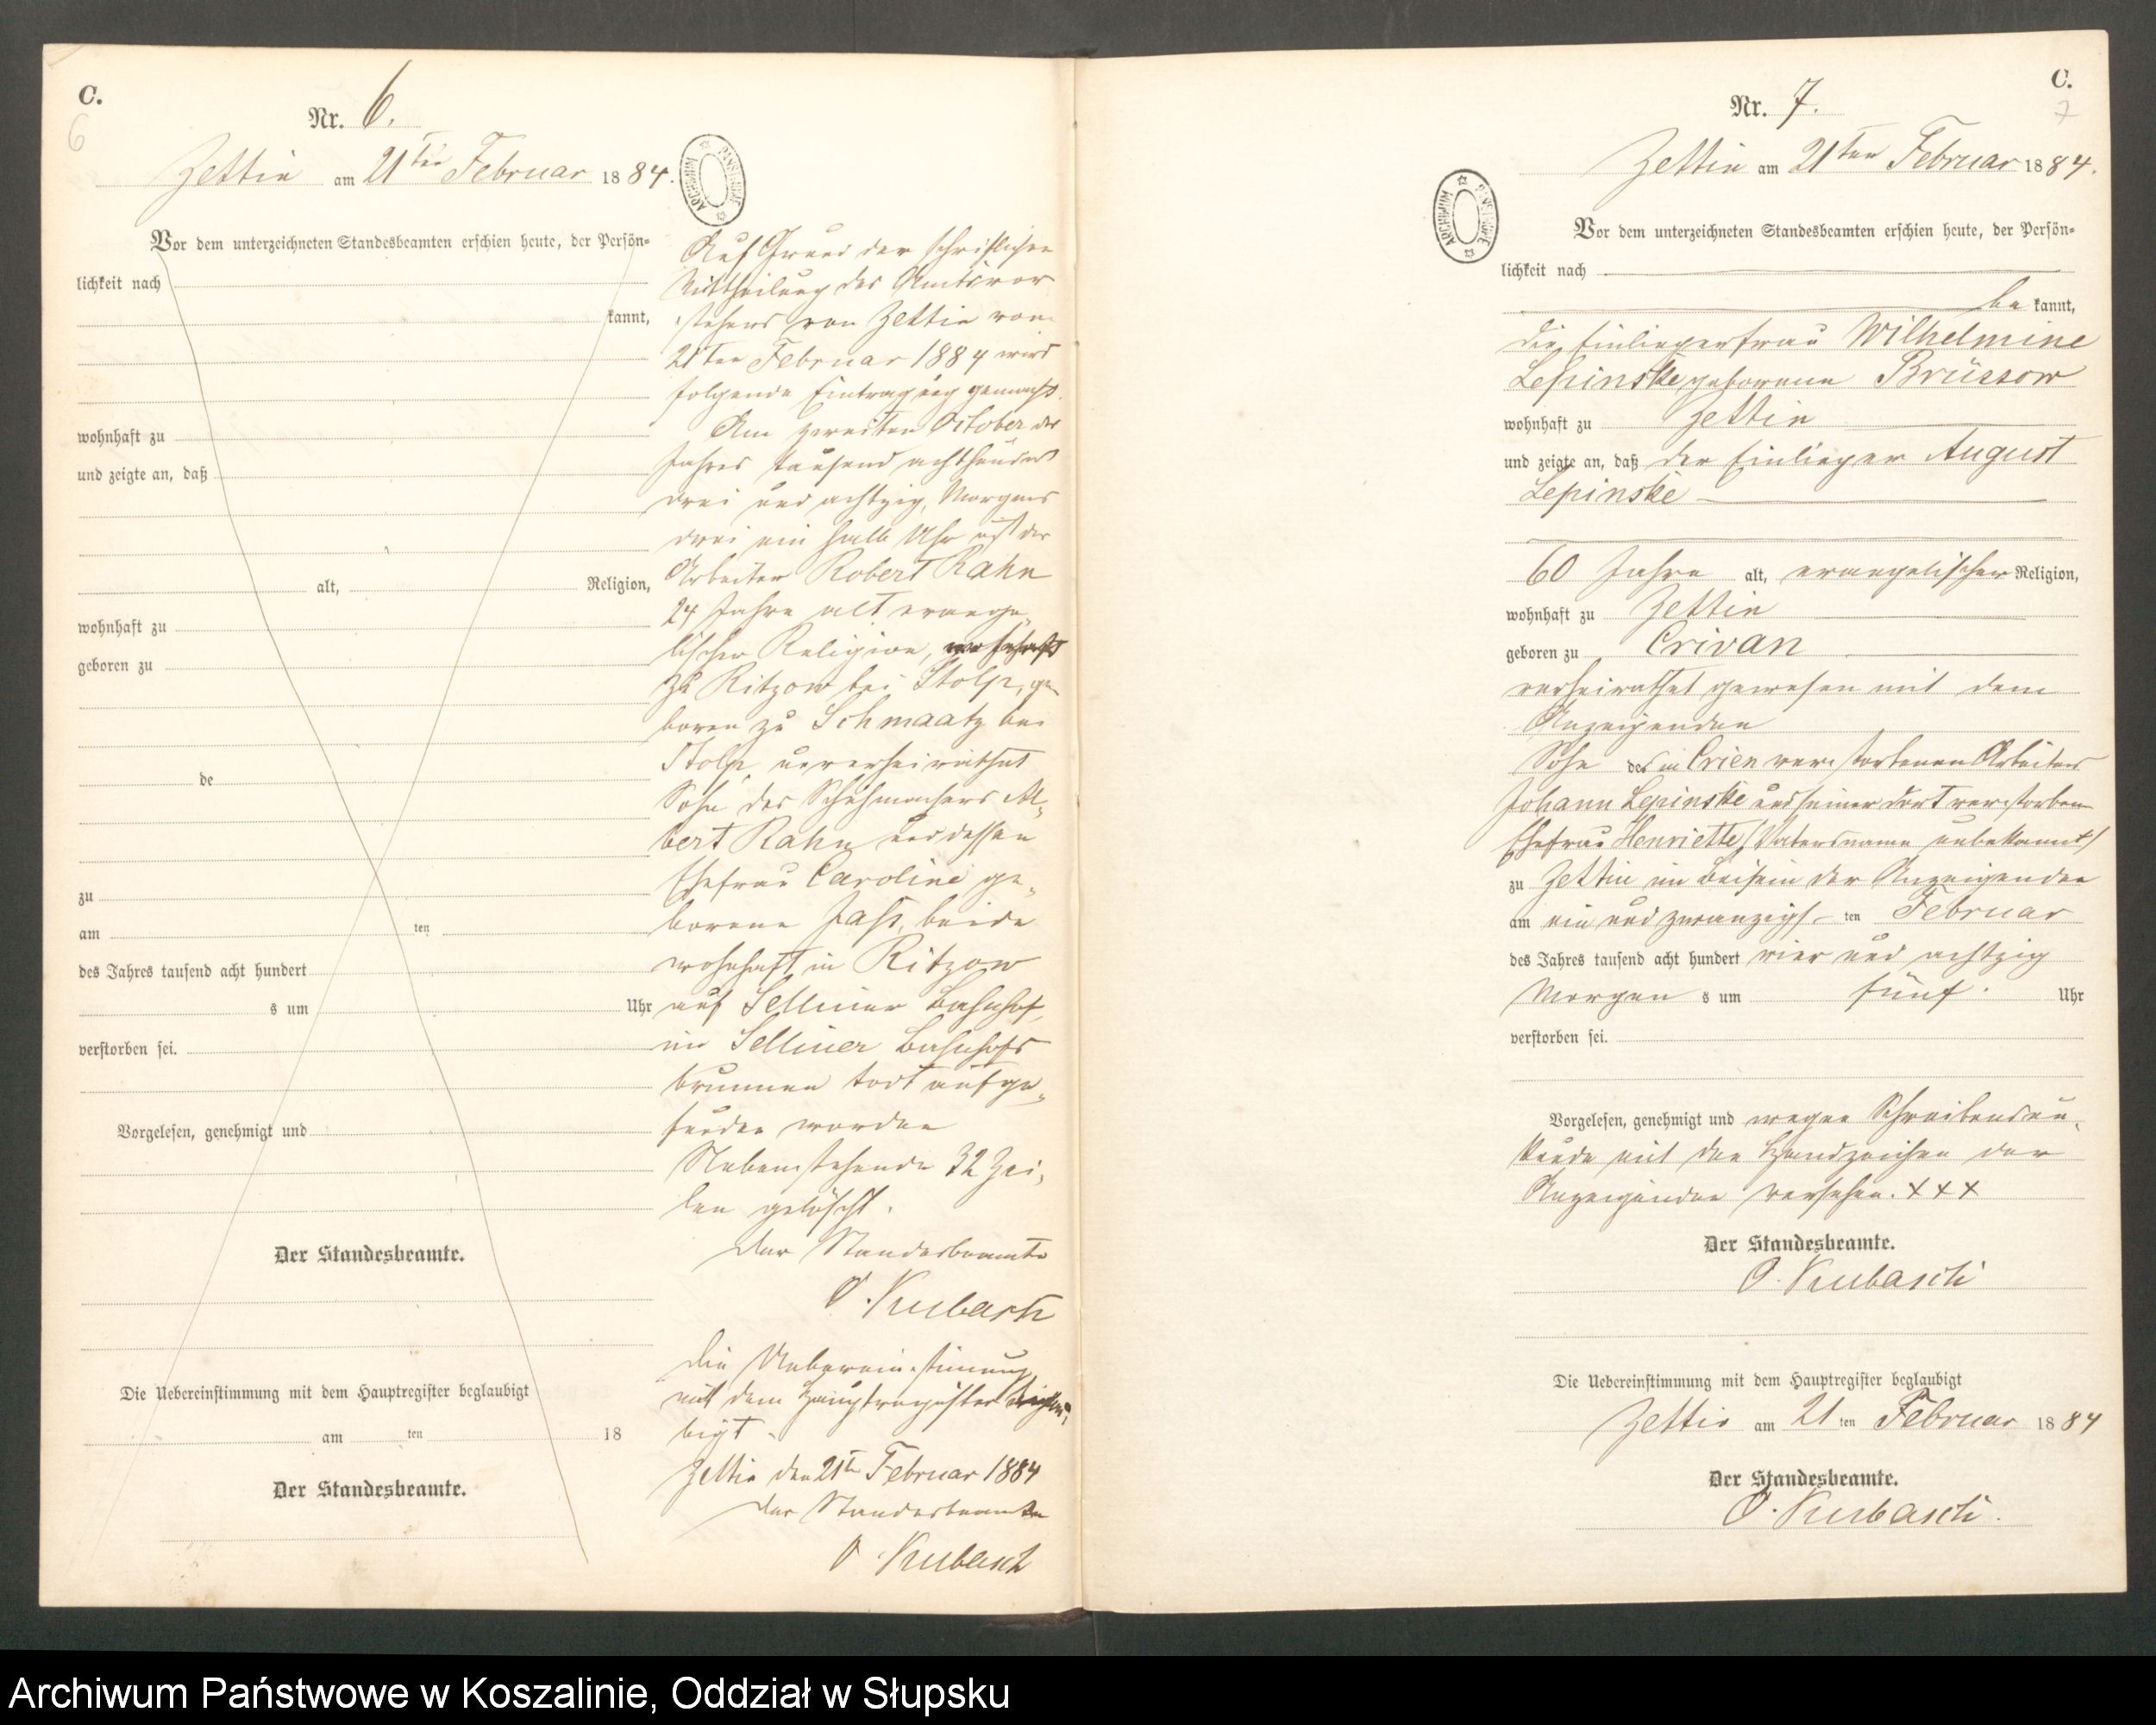 C.
6
Nr. 6.
Zettin am 21ten Februar 1884.
ARCHIWUM PAŃSTWOWE
Vor dem unterzeichneten Standesbeamten erschien heute, der Persön=
lichkeit nach
kannt,
wohnhaft zu
und zeigte an, daß
alt, Religion,
wohnhaft zu
geboren zu
de
zu
am ten
des Jahres tausend acht hundert
s um Uhr
verstorben sei.
Vorgelesen, genehmigt und
Der Standesbeamte.
Die Uebereinstimmung mit dem Hauptregister beglaubigt
am ten 18
Der Standesbeamte.
Auf Grund der schriftlichen
Mittheilung des Amtsvor
stehers von Zettin vom
21ten Februar 1884 wird
folgende Eintragung gemacht.
Am zweiten October des
Jahres tausend achthundert
drei und achtzig, Morgens
drei ein halb Uhr ist der
Arbeiter Robert Rahn
24 Jahre alt evange„
lischer Religion, wohnhaft
zu Ritzow bei Stolp, ge„
boren zu Schmaatz bei
Stolp, unverheirathet
Sohn des Schuhmachers Al„
bert Rahn und dessen
Ehefrau Caroline ge„
borene Pass, beide
wohnhaft in Ritzow
auf Selliner Bahnhof,
im Selliner Bahnhofs
brunnen todt aufge„
funden worden
Nebenstehende 32 Zei„
len gelöscht.
Der Standesbeamte
O. Kubasch
Die Uebereinstimmung
mit dem Hauptregister beglau„
bigt.
Zettin den 21ten Februar 1884
Der Standesbeamte
O. Kubasch
C.
7
Nr. 7.
Zettin am 21ten Februar 1884.
ARCHIWUM PAŃSTWOWE
Vor dem unterzeichneten Standesbeamten erschien heute, der Persön=
lichkeit nach
be kannt,
die Einliegerfrau Wilhelmine
Lepinske geborene Brüssow
wohnhaft zu Zettin
und zeigte an, daß der Einlieger August
Lepinske
60 Jahre alt, evangelischer Religion,
wohnhaft zu Zettin
geboren zu Crivan
verheirathet gewesen mit dem
Anzeigenden
Sohn des in Crien verstorbenen Arbeiters
Johann Lepinske und seiner dort verstorbenen
Ehefrau Henriette /Vatersname unbekannt/
zu Zettin im Beisein der Anzeigenden
am ein und zwanzigs- ten Februar
des Jahres tausend acht hundert vier und achtzig
Morgen s um fünf. Uhr
verstorben sei.
Vorgelesen, genehmigt und wegen Schreibensun„
kunde mit den Handzeichen der
Anzeigenden versehen. XXX
Der Standesbeamte.
O. Kubasch
Die Uebereinstimmung mit dem Hauptregister beglaubigt
Zettin am 21 ten Februar 1884
Der Standesbeamte.
O. Kubasch.
Archiwum Państwowe w Koszalinie, Oddział w Słupsku